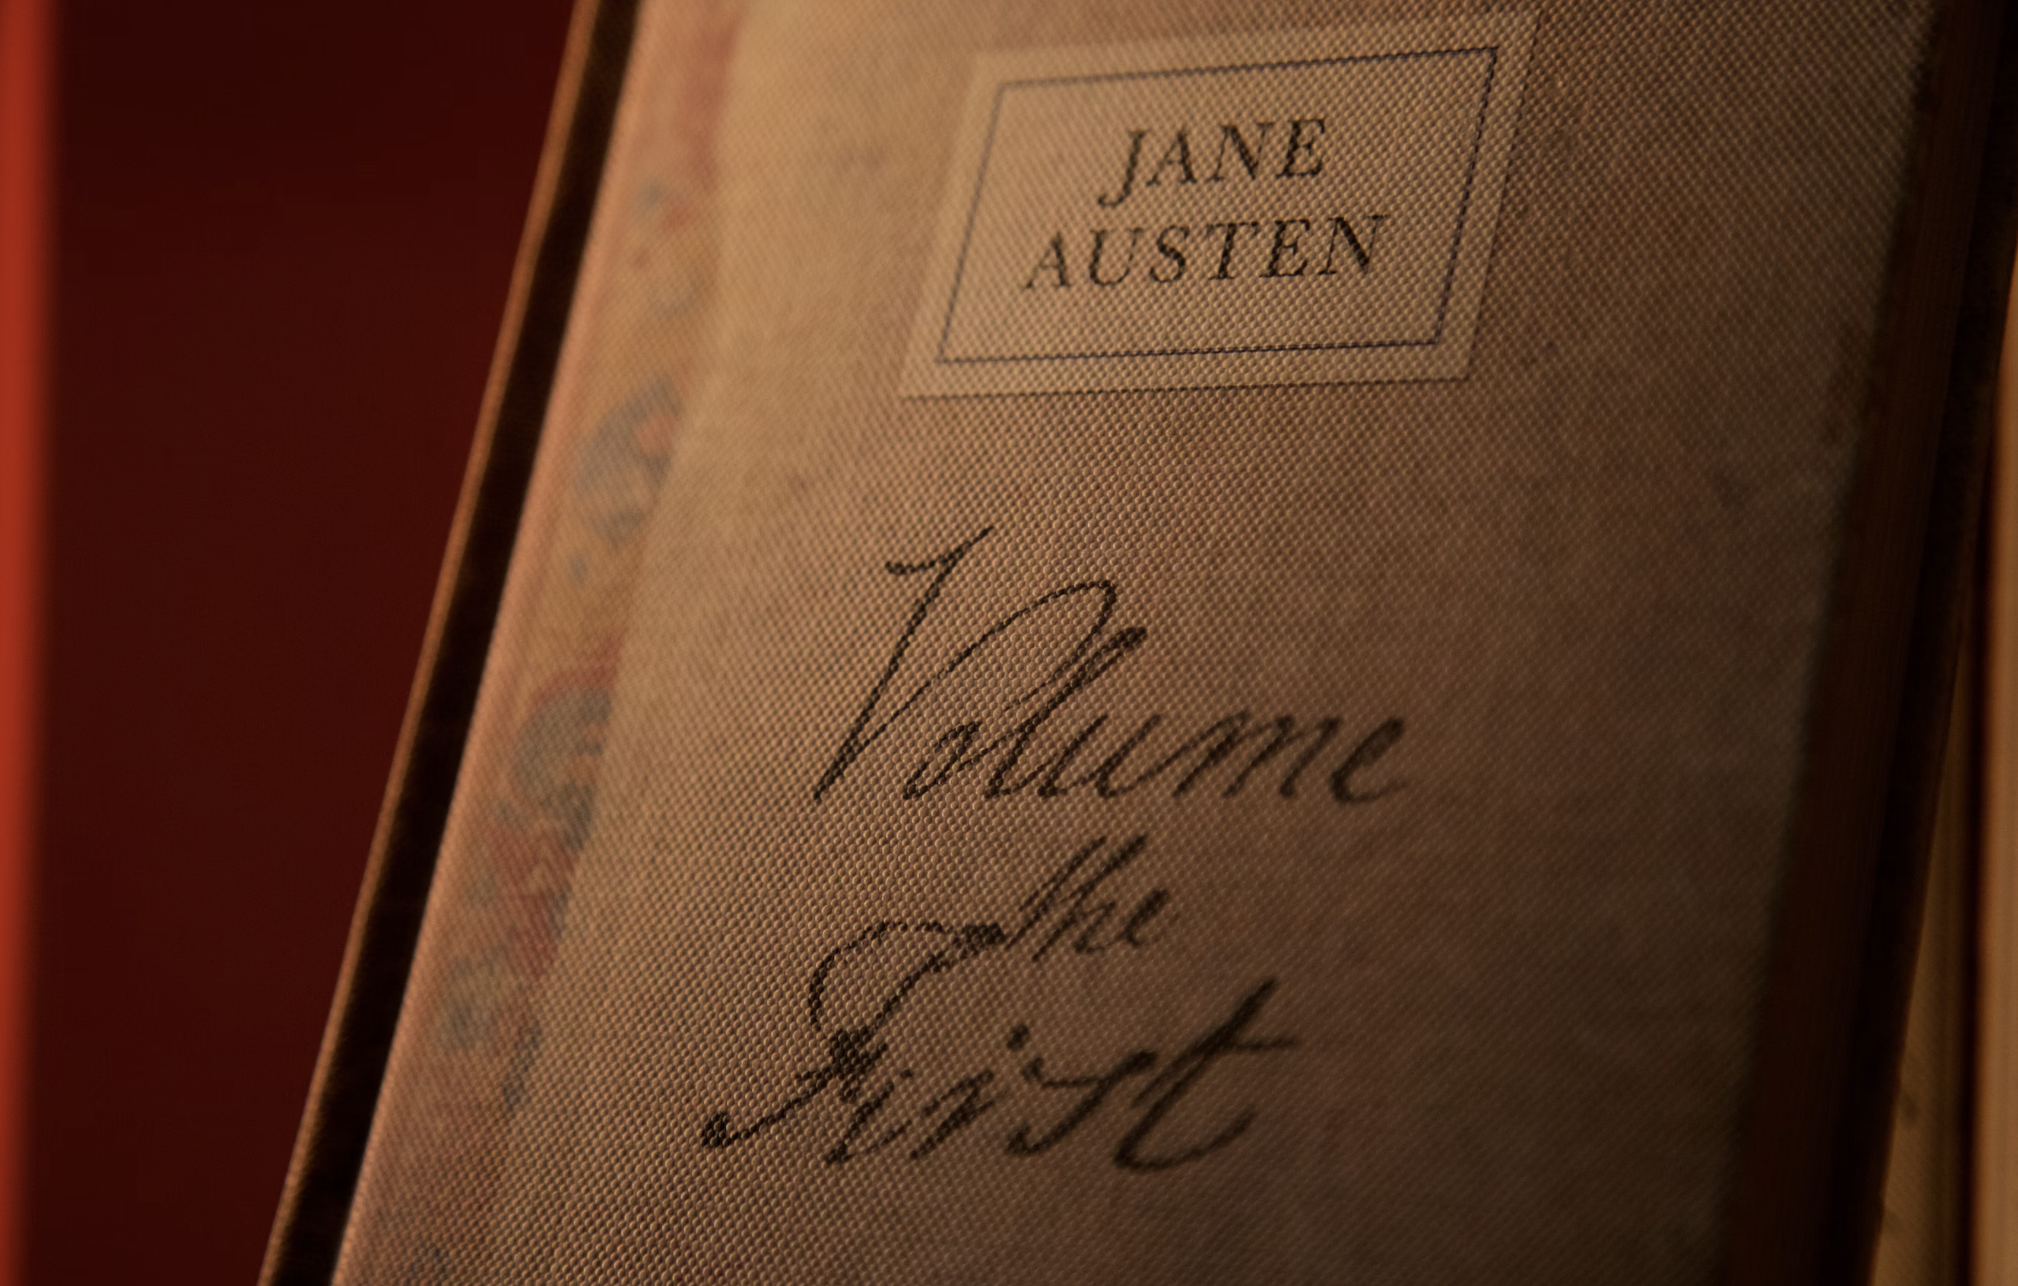 JANE
AUSTEN
Volume
the
First